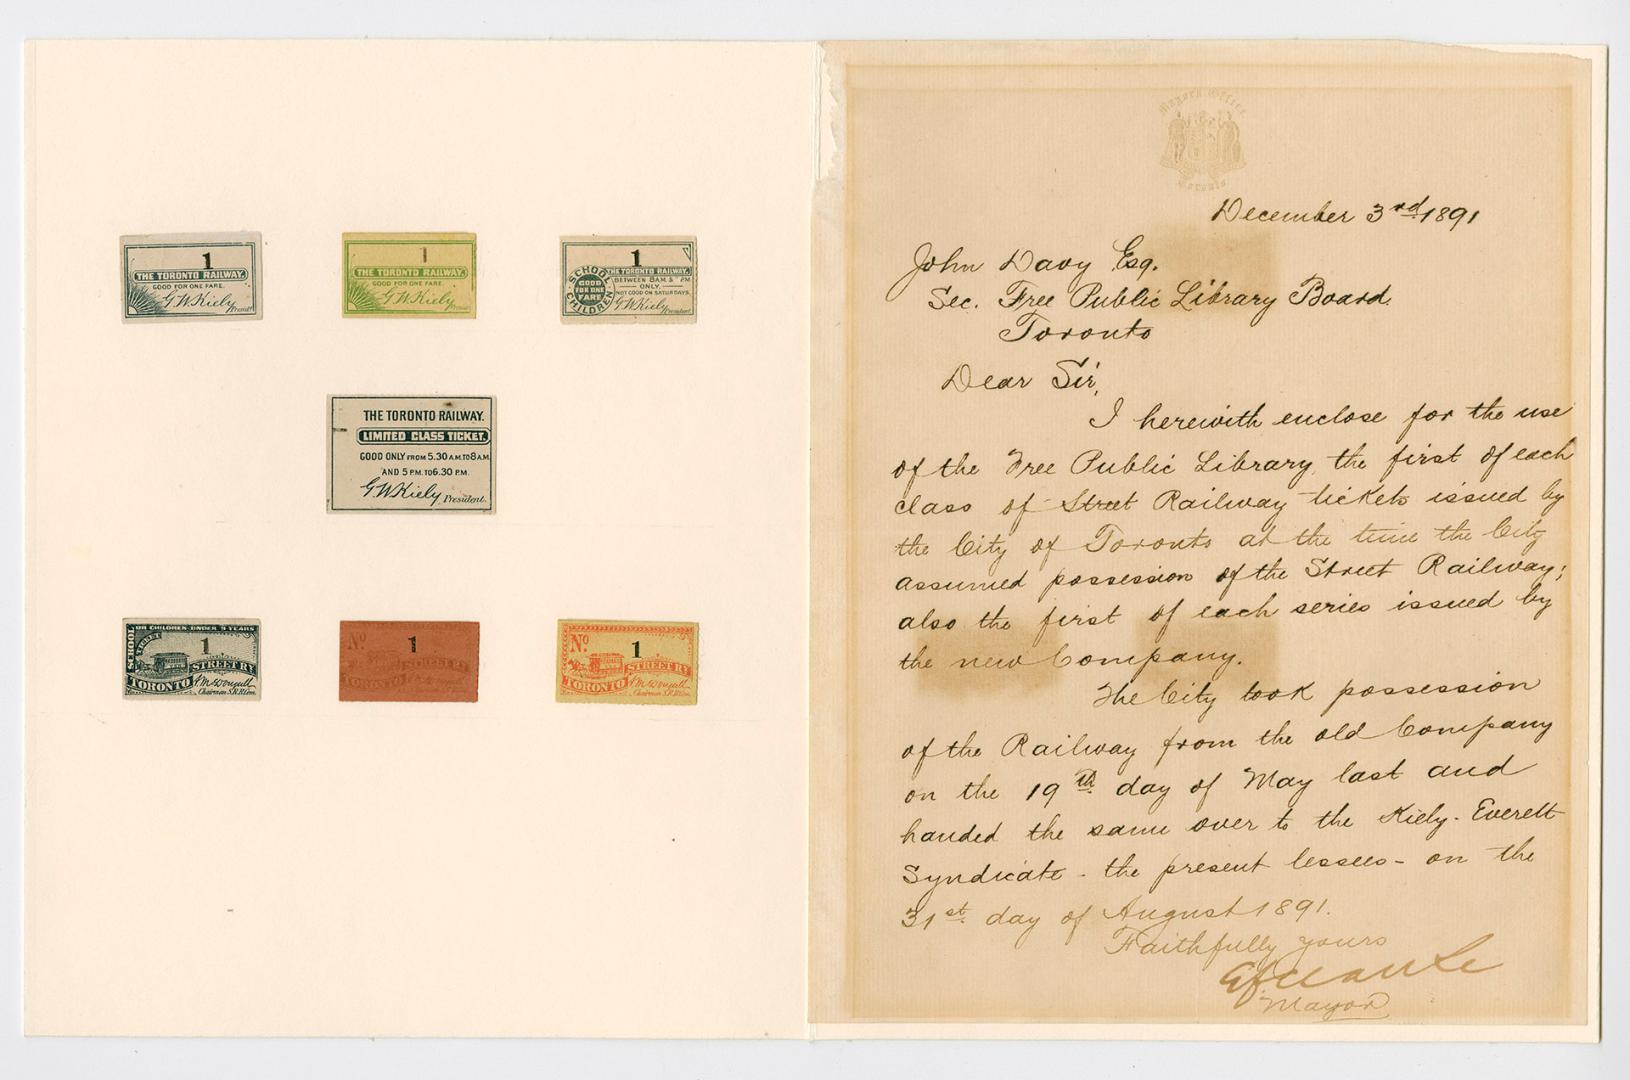 1
THE TORONTO RAILWAY.
GOOD FOR ONE FARE.
G W Kiely
President
1
THE TORONTO RAILWAY.
GOOD FOR ONE FARE.
G W Kiely
President
1
THE TORONTO RAILWAY.
SCHOOL CHILDREN
GOOD FOR ONE FARE
BETWEEN 8 A.M. & P.M.
ONLY.
NOT GOOD ON SATURDAYS.
G W Kiely
President
THE TORONTO RAILWAY.
LIMITED CLASS TICKET.
GOOD ONLY FROM 5.30 A.M. TO 8 A.M.
AND 5 P.M. TO 6.30 P.M.
G W Kiely, President.
OR CHILDREN UNDER 9 YEARS
SCHOOL
TICKET
1
STREET RY
TORONTO
Chairman S.R. Com.
No
1
STREET RY
TORONTO
No.
1
STREET RY
TORONTO
Chairman S.R. Com.
Mayors Office
Toronto
December 3rd 1891
John Davy Esq.
Sec. Free Public Library Board.
Toronto
Dear Sir,
I herewith enclose for the use
of the Free Public Library, the first of each
class of Street Railway tickets issued by
the City of Toronto at the time the City
assumed possession of the Street Railway;
also the first of each series issued by
the new Company.
The City took possession
of the Railway from the old Company
on the 19th day of May last and
handed the same over to the Kiely-Everett
Syndicate - the present lessees - on the
31st day of August 1891.
Faithfully yours
E F Clarke
Mayor